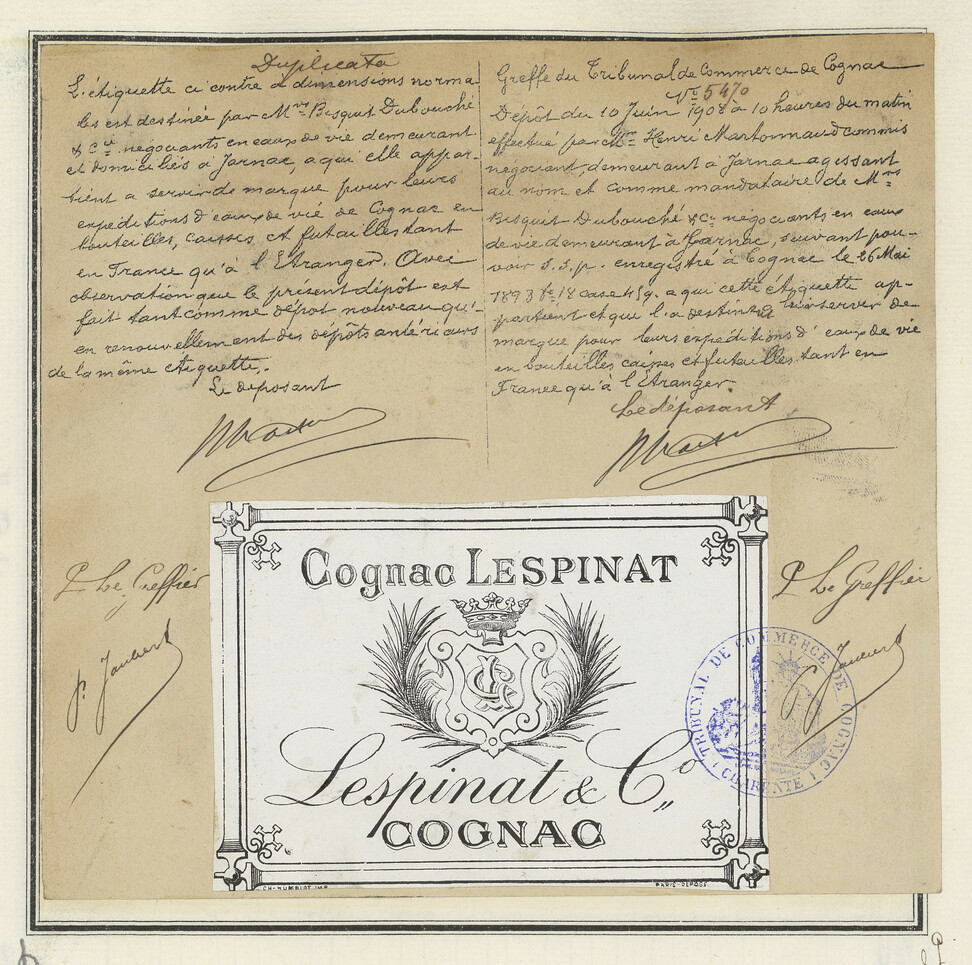 Duplicata
L'étiquette ci contre a dimensions norma
les est destinée par Mrs Bisquit Dubouché
& Cie négociants en eaux de vie demeurant
et domiciliés a Jarnac, a qui elle appar-
tient a servir de marque pour leurs
expéditions d'eaux de vie de Cognac en
bouteilles, caisses et futailles tant
en France qu'à l'Etranger. Avec
observation que le présent dépôt est
fait tant comme dépôt nouveau qu'
en renouvellement des dépôts antérieurs
de la même étiquette.
Le déposant
Greffe du Tribunal de Commerce de Cognac
No 5470
Dépôt du 10 Juin 1908 à 10 heures du matin
effectué par Mr Henri Martonnaud commis
négociant, demeurant à Jarnac agissant
au nom et comme mandataire de Mrs
Bisquit Dubouché & Cie négociants en eaux
de vie demeurant à Jarnac, suivant pou-
voir s.s.p. enregistré à Cognac le 26 Mai
1893 fo 18 case 459. a qui cette étiquette ap-
partient et qui l'a destinée à servir de
marque pour leurs expéditions d'eaux de vie
en bouteilles caisses et futailles tant en
France qu'à l'Etranger.
Le déposant
P Le Greffier
P. Jaubert
P Le Greffier
Jaubert
Cognac LESPINAT
Lespinat & Co
COGNAC
CH. HUMBLOT IMP
PARIS-DÉPOSÉ
TRIBUNAL DE COMMERCE DE COGNAC
CHARENTE